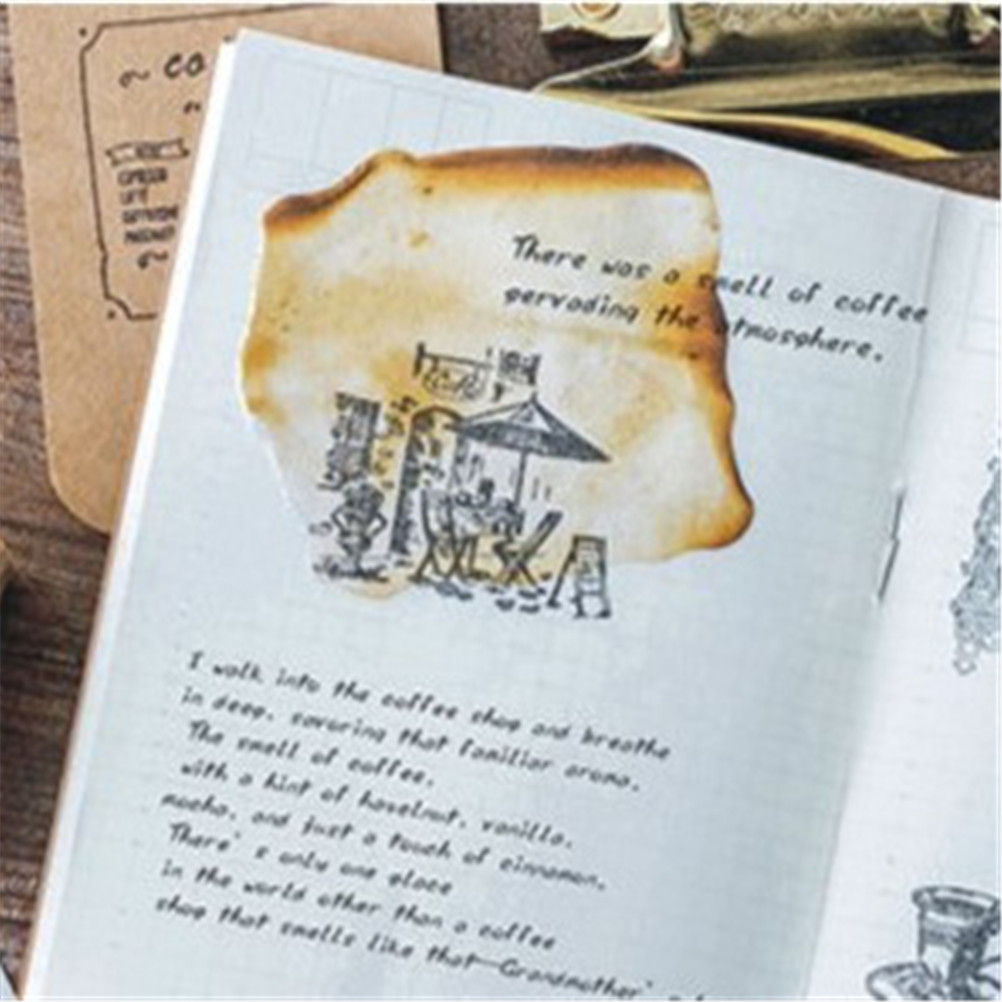 CO
There was a smell of coffee
pervading the atmosphere.
I walk into the coffee shop and breathe
in deep, savoring that familiar aroma.
The smell of coffee,
with a hint of havelnut, vanilla,
mocha, and just a touch of cinnamon.
There's only one place
in the world other than a coffee
shop that smells like that—Grandmother'